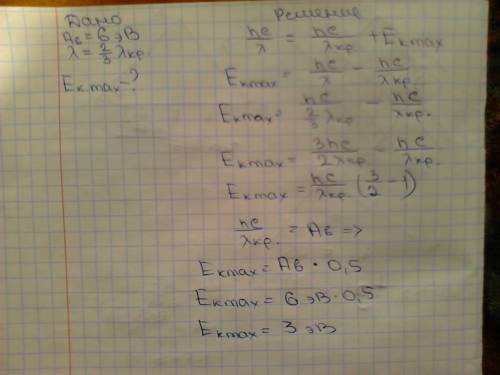 Дано
Aв = 6 эВ
λ = 2/3 λкр.
Eкmax - ?
Решение
hc/λ = hc/λкр. + Eкmax
Eкmax = hc/λ - hc/λкр.
Eкmax = hc/(2/3 λкр.) - hc/λкр.
Eкmax = 3hc/2λкр. - hc/λкр.
Eкmax = hc/λкр. (3/2 - 1)
hc/λкр. = Aв =>
Eкmax = Aв · 0,5
Eкmax = 6 эВ · 0,5
Eкmax = 3 эВ